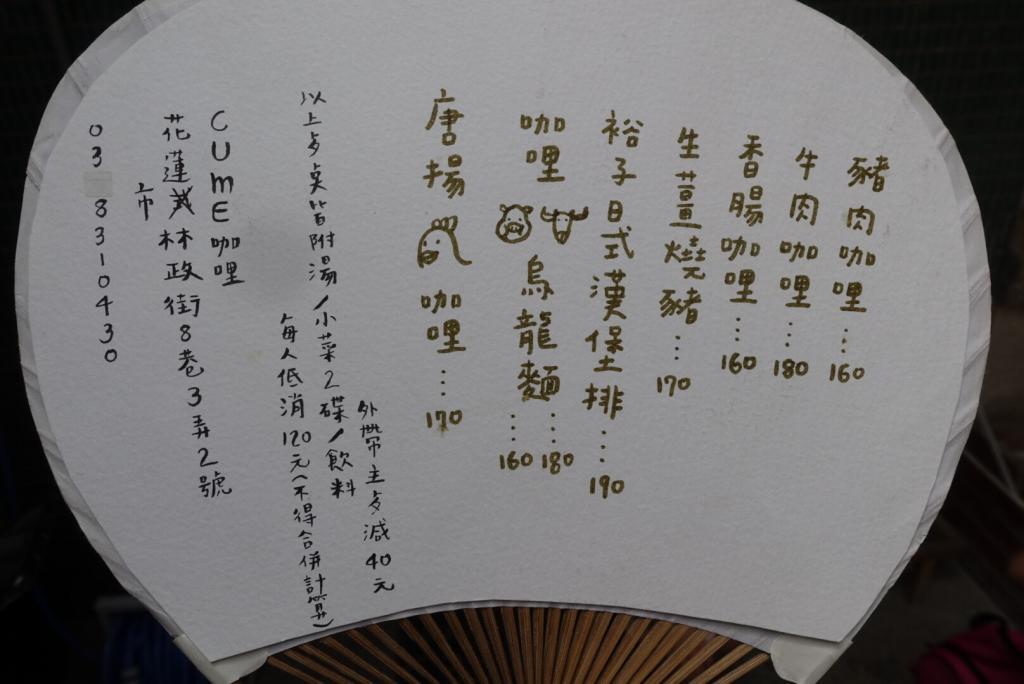 豬肉咖哩...160
牛肉咖哩...180
香腸咖哩....160
生薑燒豬....170
裕子日式漢堡排...190
咖哩烏龍麵
....180
....160
唐揚咖哩...170
以上多桌皆附湯/小菜2碟/飲料
外帶主食減40元
每人低消120元(不得合併計算)
CUME咖哩
花蓮市林政街8巷3弄2號
03 8310430